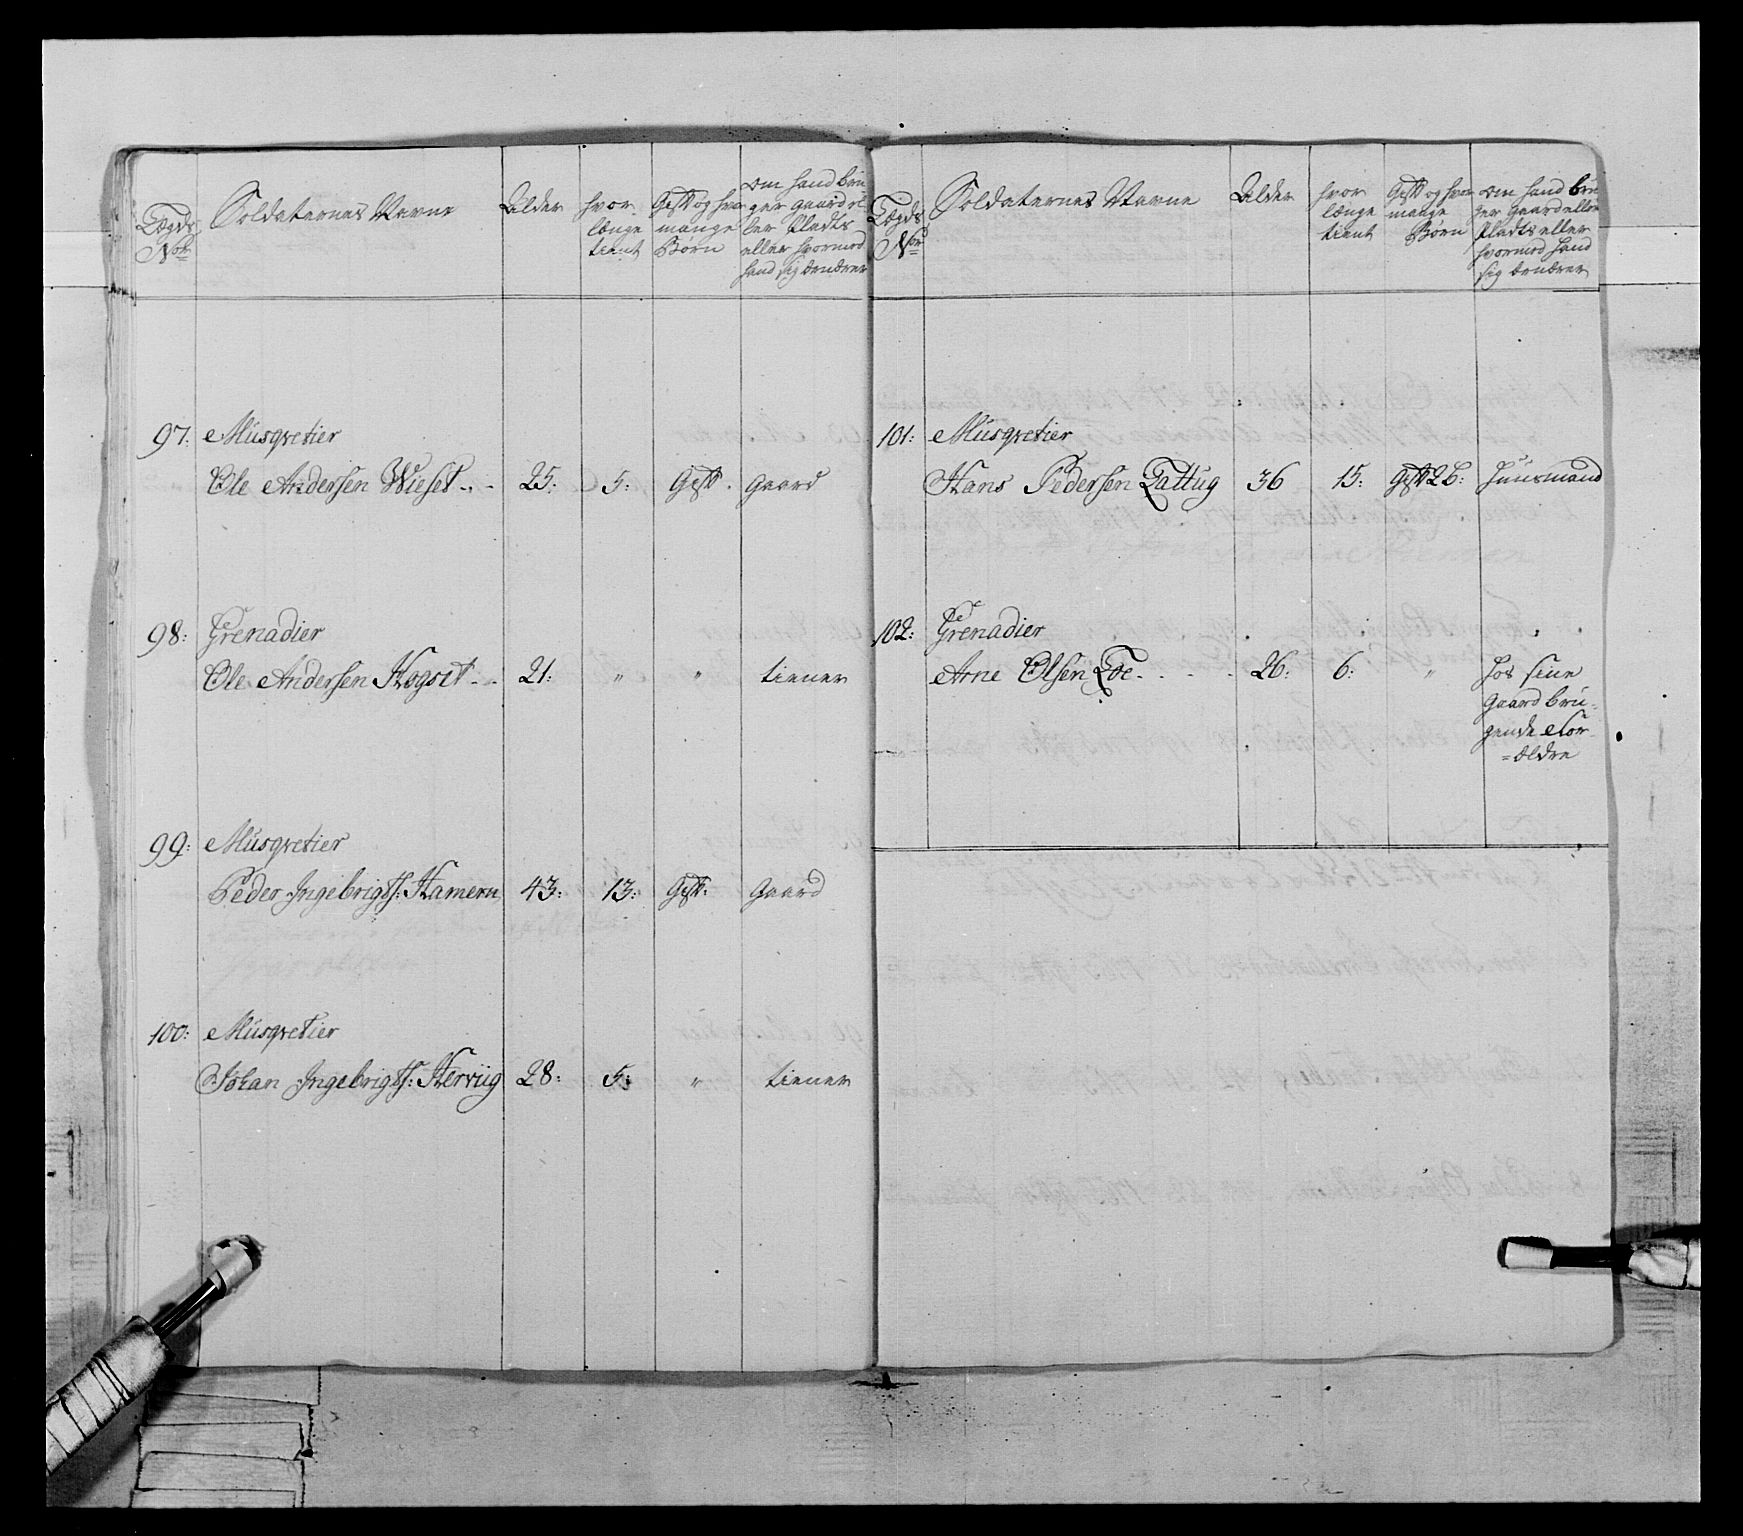 Lægds
No
Soldaternes Navne
Alder
hvor
længe
tient
Gift og hvor
mange
Børn
om hand bru-
ger gaard el-
ler Plads
eller hvormed
hand sig ernærer
97: Musqvetier
Ole Andersen Wieset - - 25: 5: Gift. gaard
98: Grenadier
Ole Andersen Hogset - - 21: " " tiener
99: Musqvetier
Peder Ingebrigts: Hamern 43: 13: Gift. Gaard
100: Musqvetier
Johan Ingebrigts: Hervüg 28: 5: " tiener
Lægds
No
Soldaternes Navne
Alder
hvor
længe
tient
Gift og hvor
mange
Børn
om hand bru-
ger Gaard eller
Plads eller
hvormed hand
sig ernærer
101: Musqvetier
Hans Pedersen Lattug 36 15: Gift 2B: Huusmand
102: Grenadier
Arne Olsen Loe - - - - 26: 6: " hos sine
gaard bru-
gende For-
=ældre